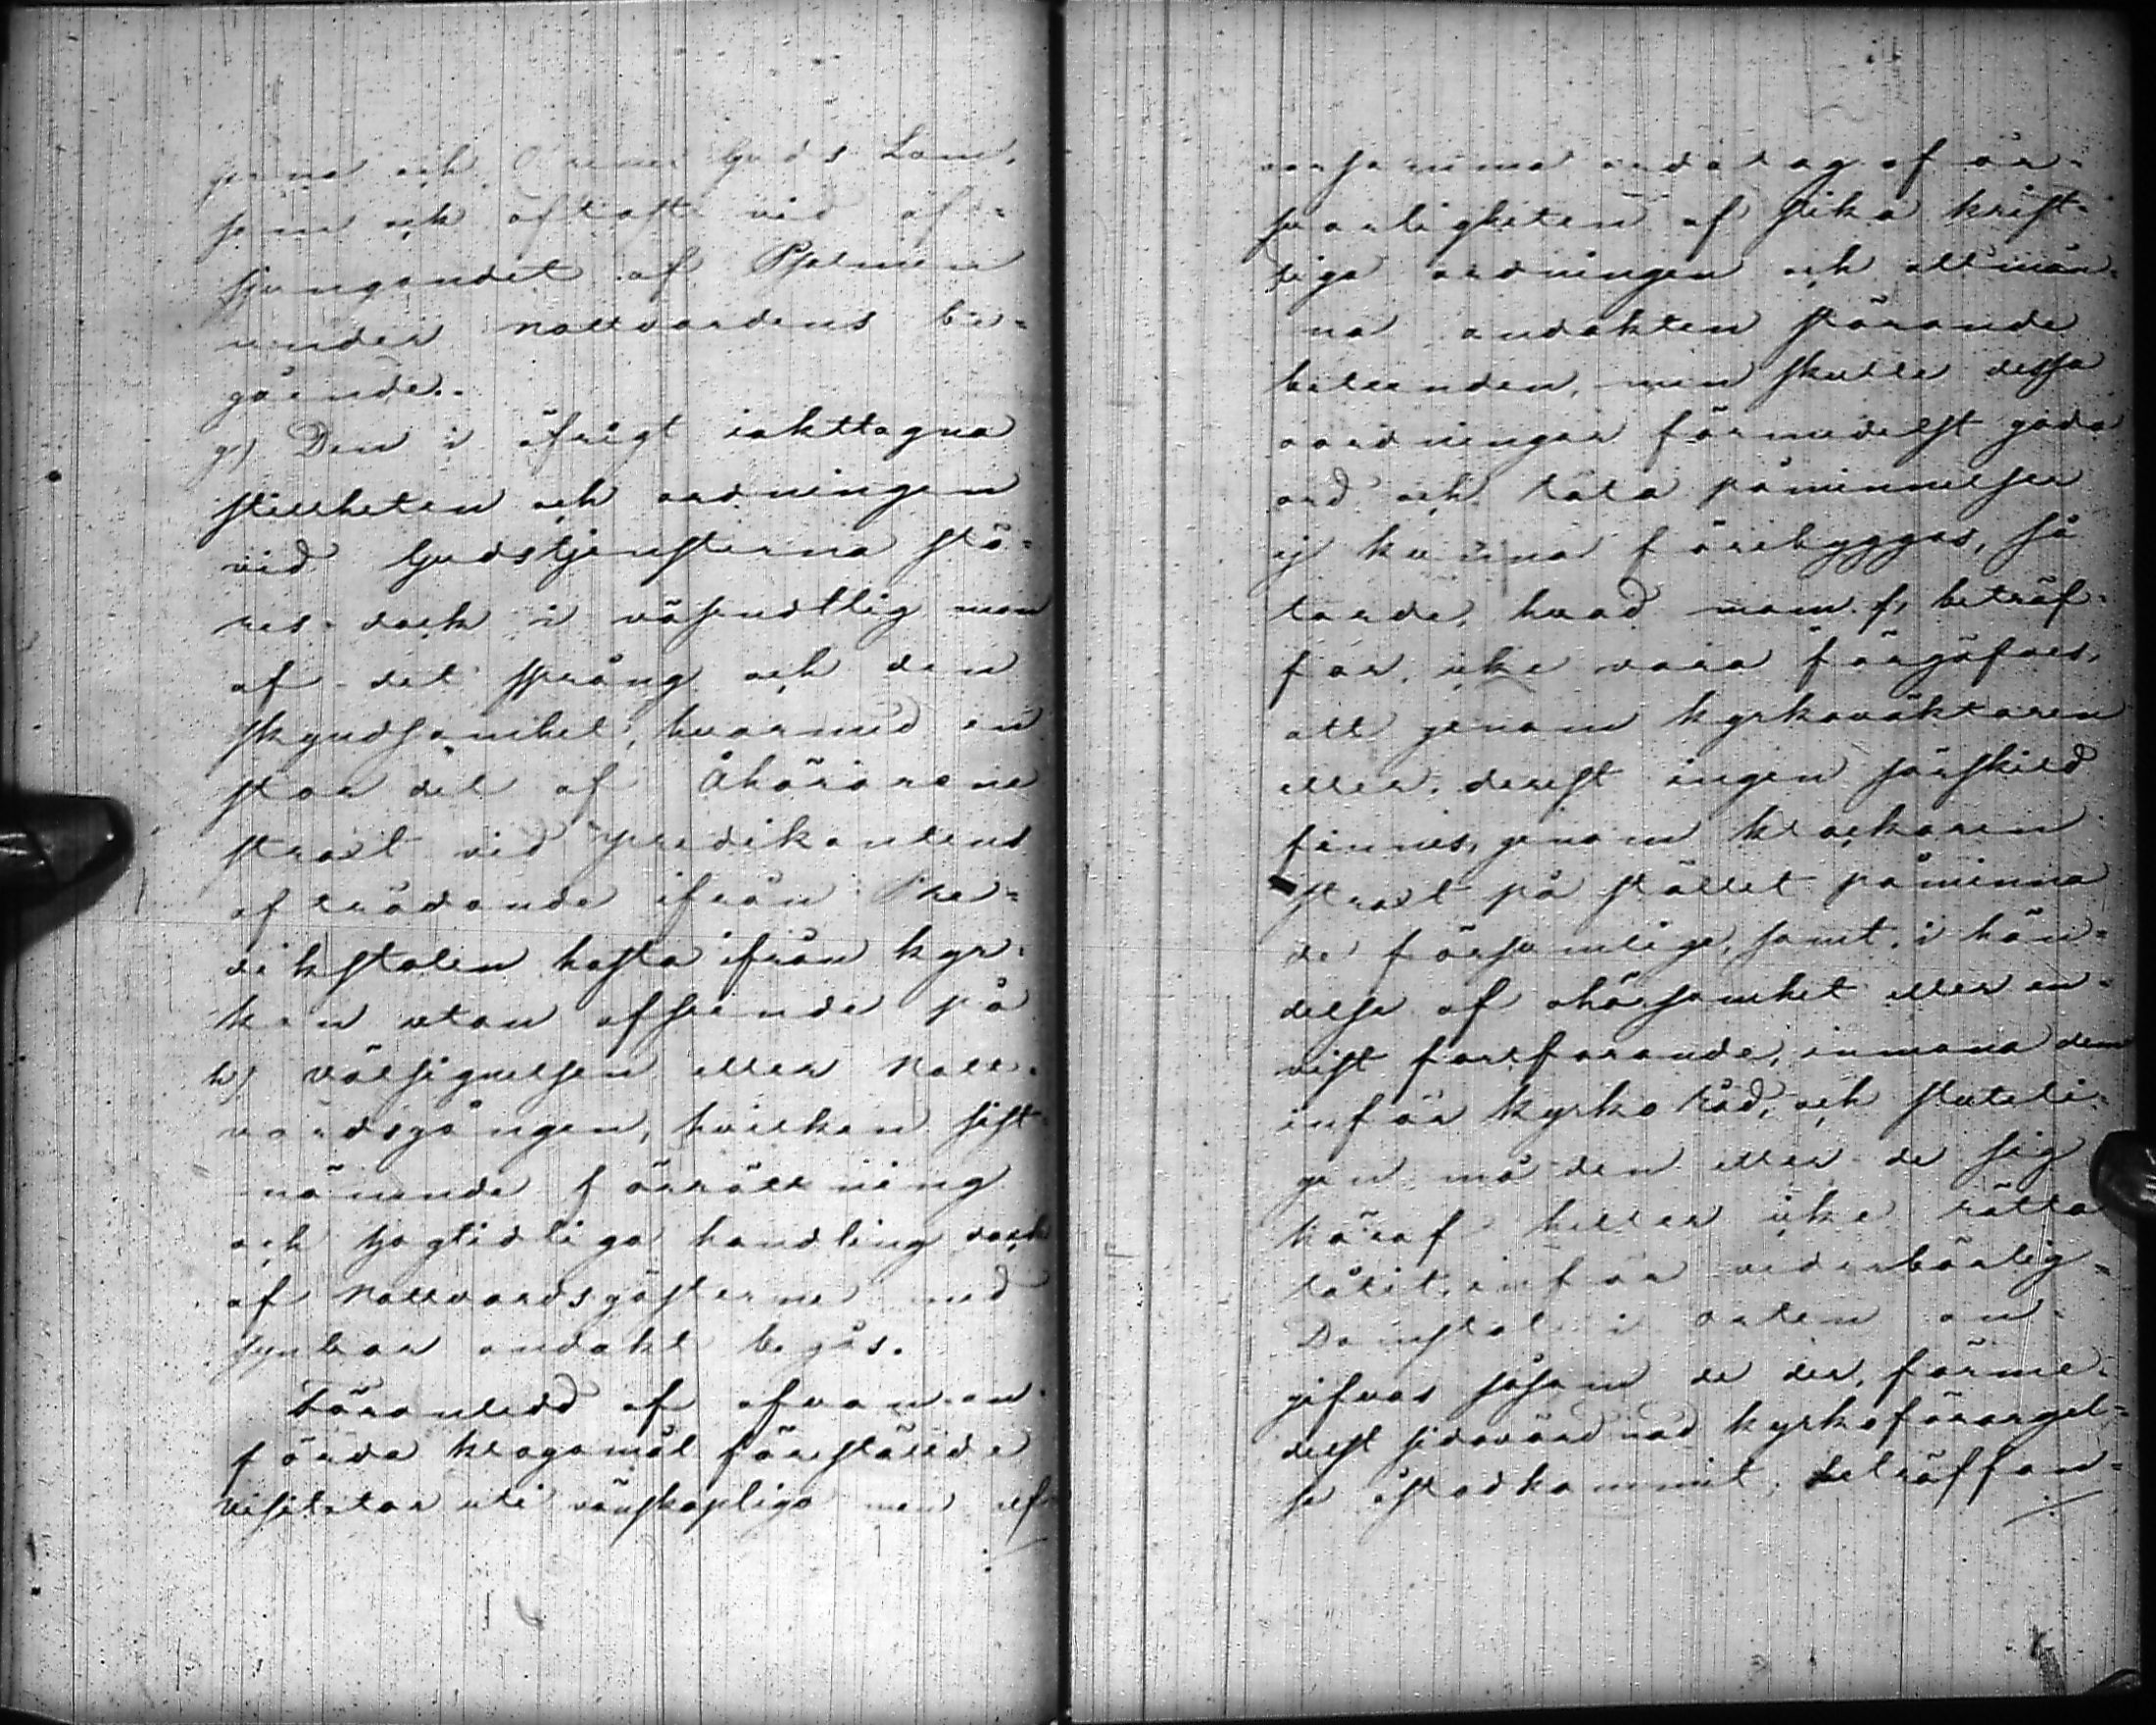 och O rena Guds Lam,
som och oftast vid af-
sjungandet af Psalmen
under nattvardens be-
gående.
g) Den i öfrigt iakttagna
stillheten och ordningen
vid Gudstjensterna stö-
res dock i väsendtlig mon
af det språng och den
skyndsamhet, hvarmed en
stor del af Åhörarene
strax vid predikantens
afträdande ifrån Pre-
dikstolen hasta ifrån kyr-
kan utan afseende på
h) välsignelsen eller natt-
vardsgången, hvilken sist-
nämnde förrättning
och högtidliga handling dock
af Nattvardsgästerna med
synbar andakt begås.
Föranledd af ofvan an-
förda klagomål förestälde
Visitator uti vänskapliga men alf-
varsamma ordalag af är-
svarligheten af slika krist-
liga ordningen och allmän-
na andakten störande
beteenden, men skulle dessa
oordningar förmedelst goda
ord och täta påminnelser
ej kunna förebyggas, så
torde, hvad mom. f, beträf-
far, icke vara förgäfves,
att genom kyrkovaktaren
eller, derest ingen särskild
finnes, genom klockaren
strax på stället påminna
de försumlige, samt, i hän-
delse af ohörsamhet eller en-
vist fortfarande, inmana dem
inför kyrkoråd, och slutli-
gen må den eller de sig
häraf heller icke rätta
låtit, inför vederbörlig
Domstol i orten an-
gifvas såsom de der, förme-
delst sidovördnad kyrkoförargel-
se åstadkommit, beträffan-